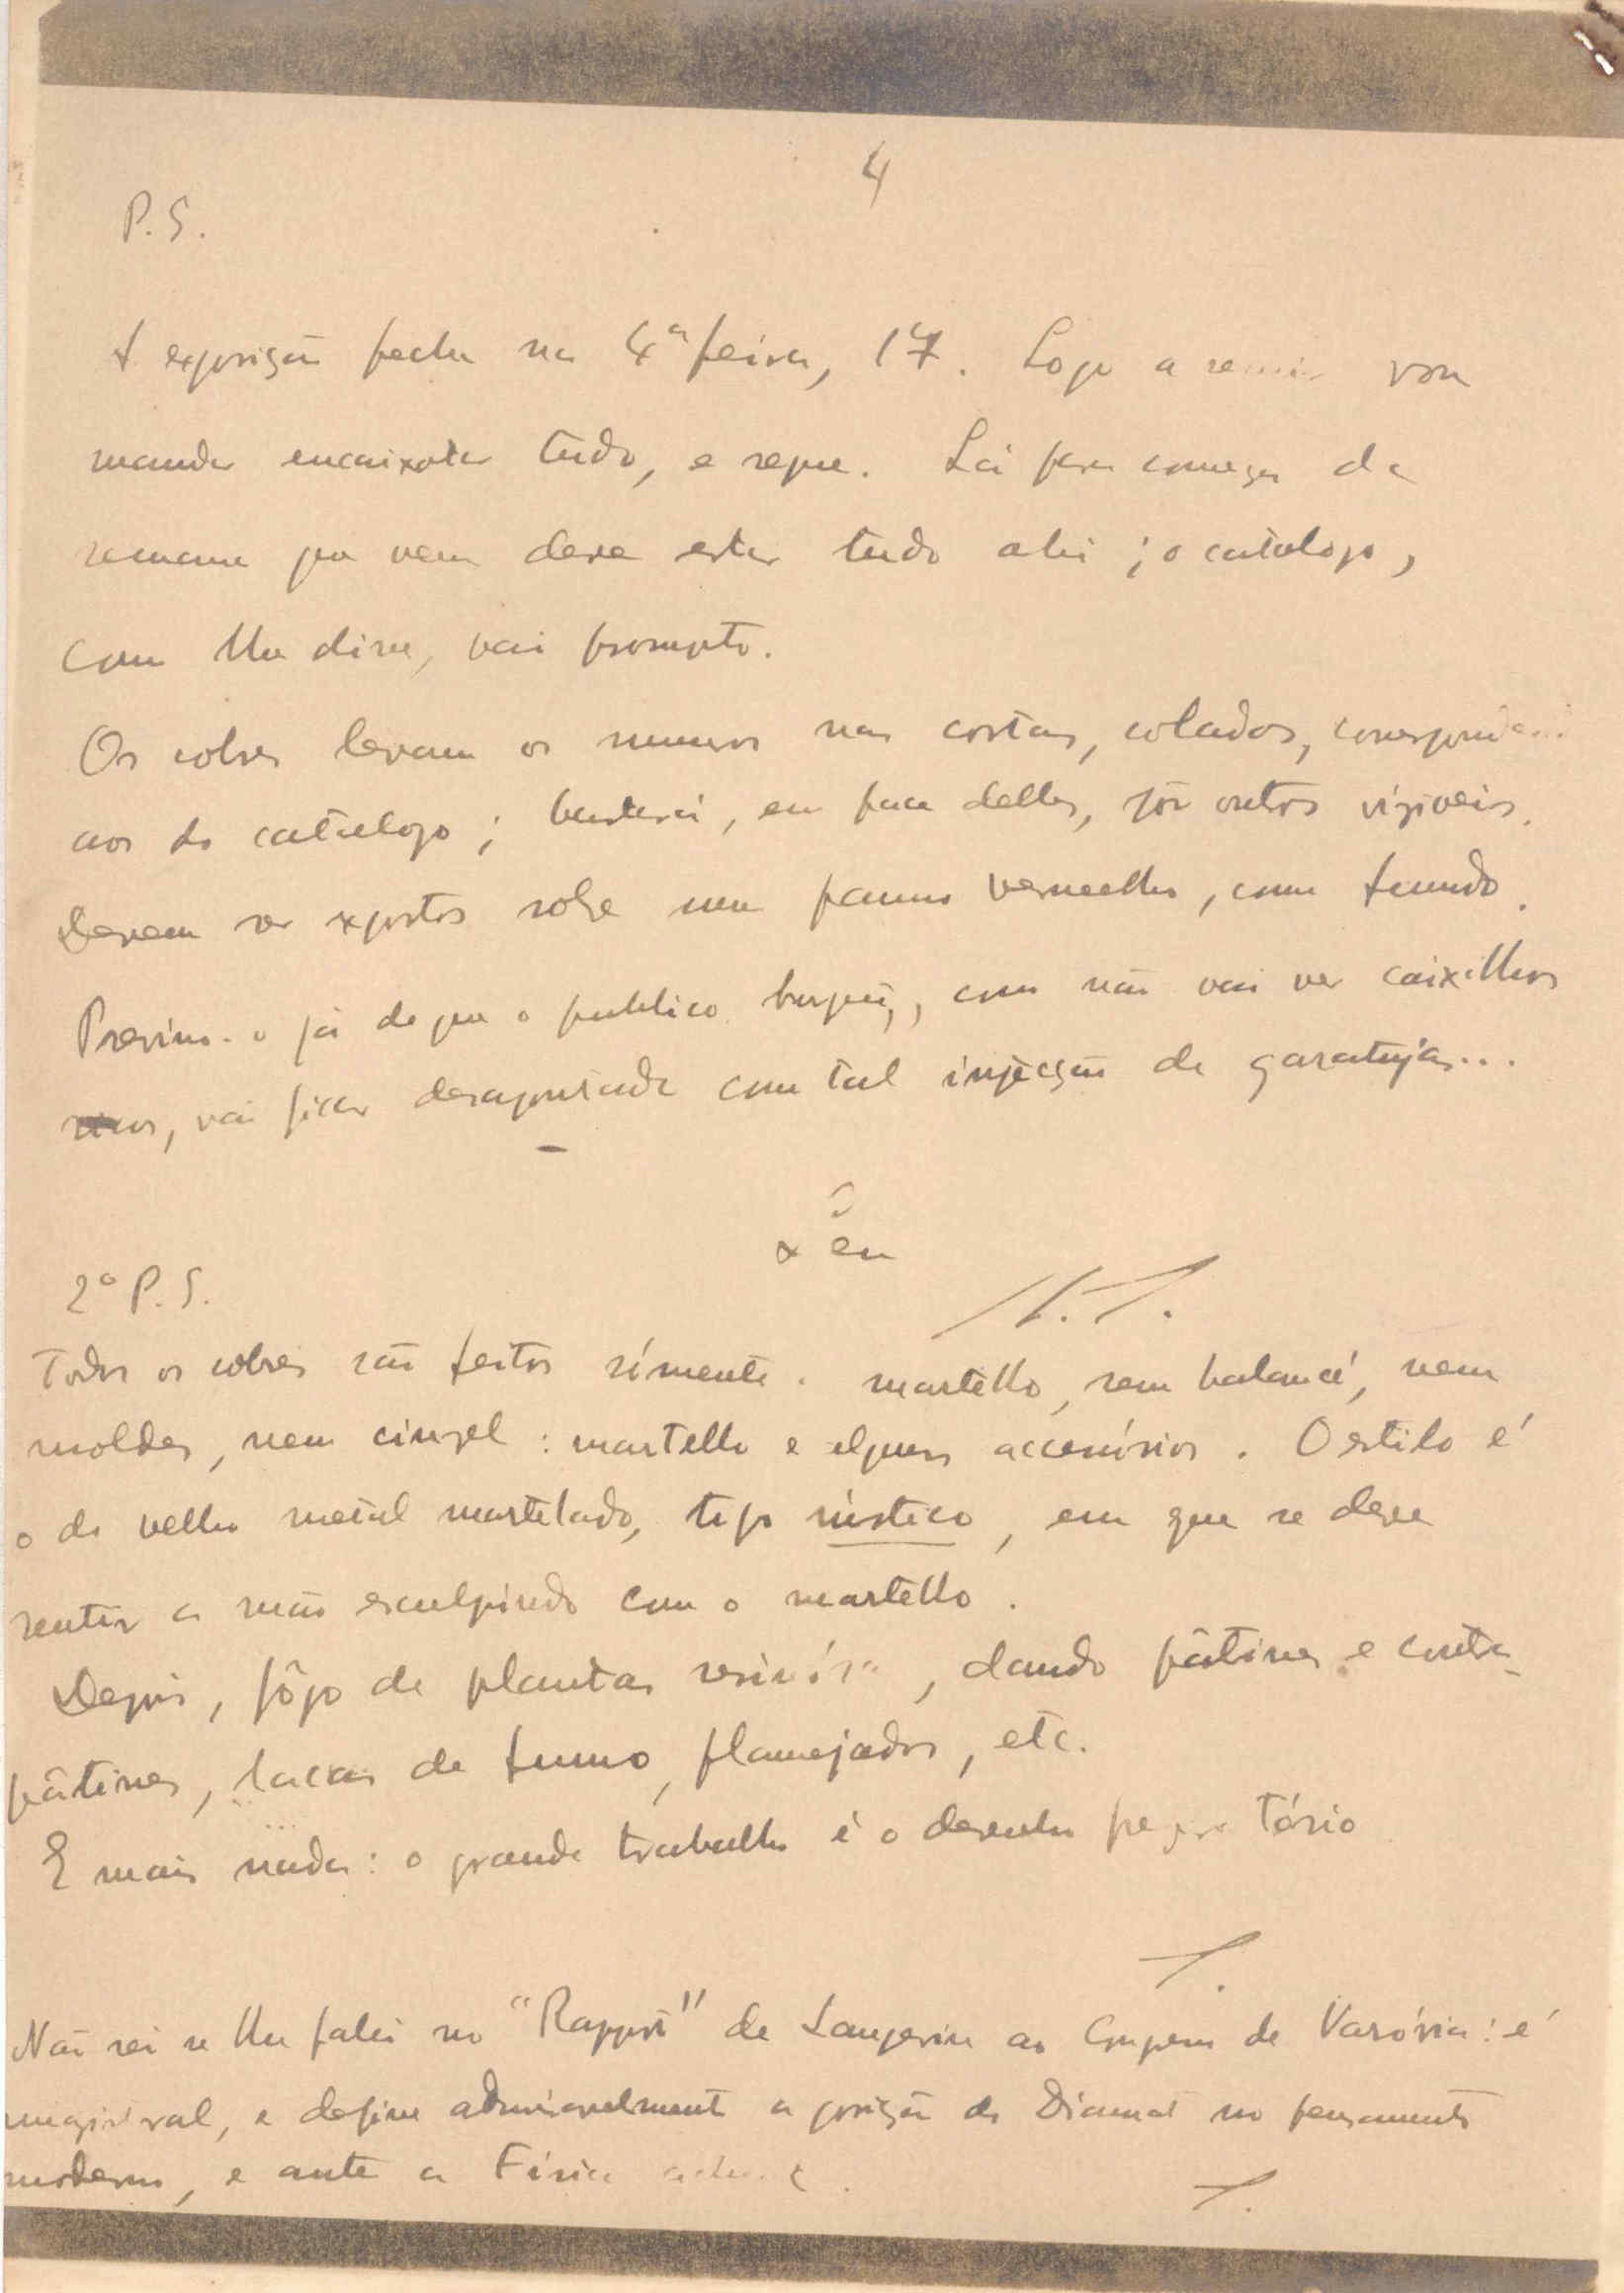 4
P.S.
A exposição fecha na 4ª feira, 17. Logo a seguir vou
mandar encaixotar tudo, e segue. Lá para começo da
semana que vem deve estar tudo ahi; o catalogo,
como lhe disse, vai prompto.
Os cobres levam os numeros nas costas, colados,
aos do catalogo; bastará, em face delles, pôr outros visiveis.
Devem ser expostos sobre um panno vermelho, como fundo.
Previno-o já de que o publico burguês, como não vai ver caixilhos
, vai ficar desapontado com tal injecção de garatujas...
2º P.S.
Todos os cobres são feitos sómente a martello, sem balancé, nem
moldes, nem cinzel: martello e alguns accessórios. O estilo é
o do velho metal martelado, tipo rústico, em que se deve
sentir a mão esculpindo com o martello.
Depois, fôgo de plantas, dando pâtines e contra-
pâtines, lacas de fumo, flamejados, etc.
E mais nada: o grande trabalho é o desenho preparatório
T.
Não sei se lhe falei no "Rapport" de Langevin ao Congresso de Varsóvia: é
magistral, e define admiravelmente a posição do Diamat no pensamento
moderno, e ante a Física actual.
T.